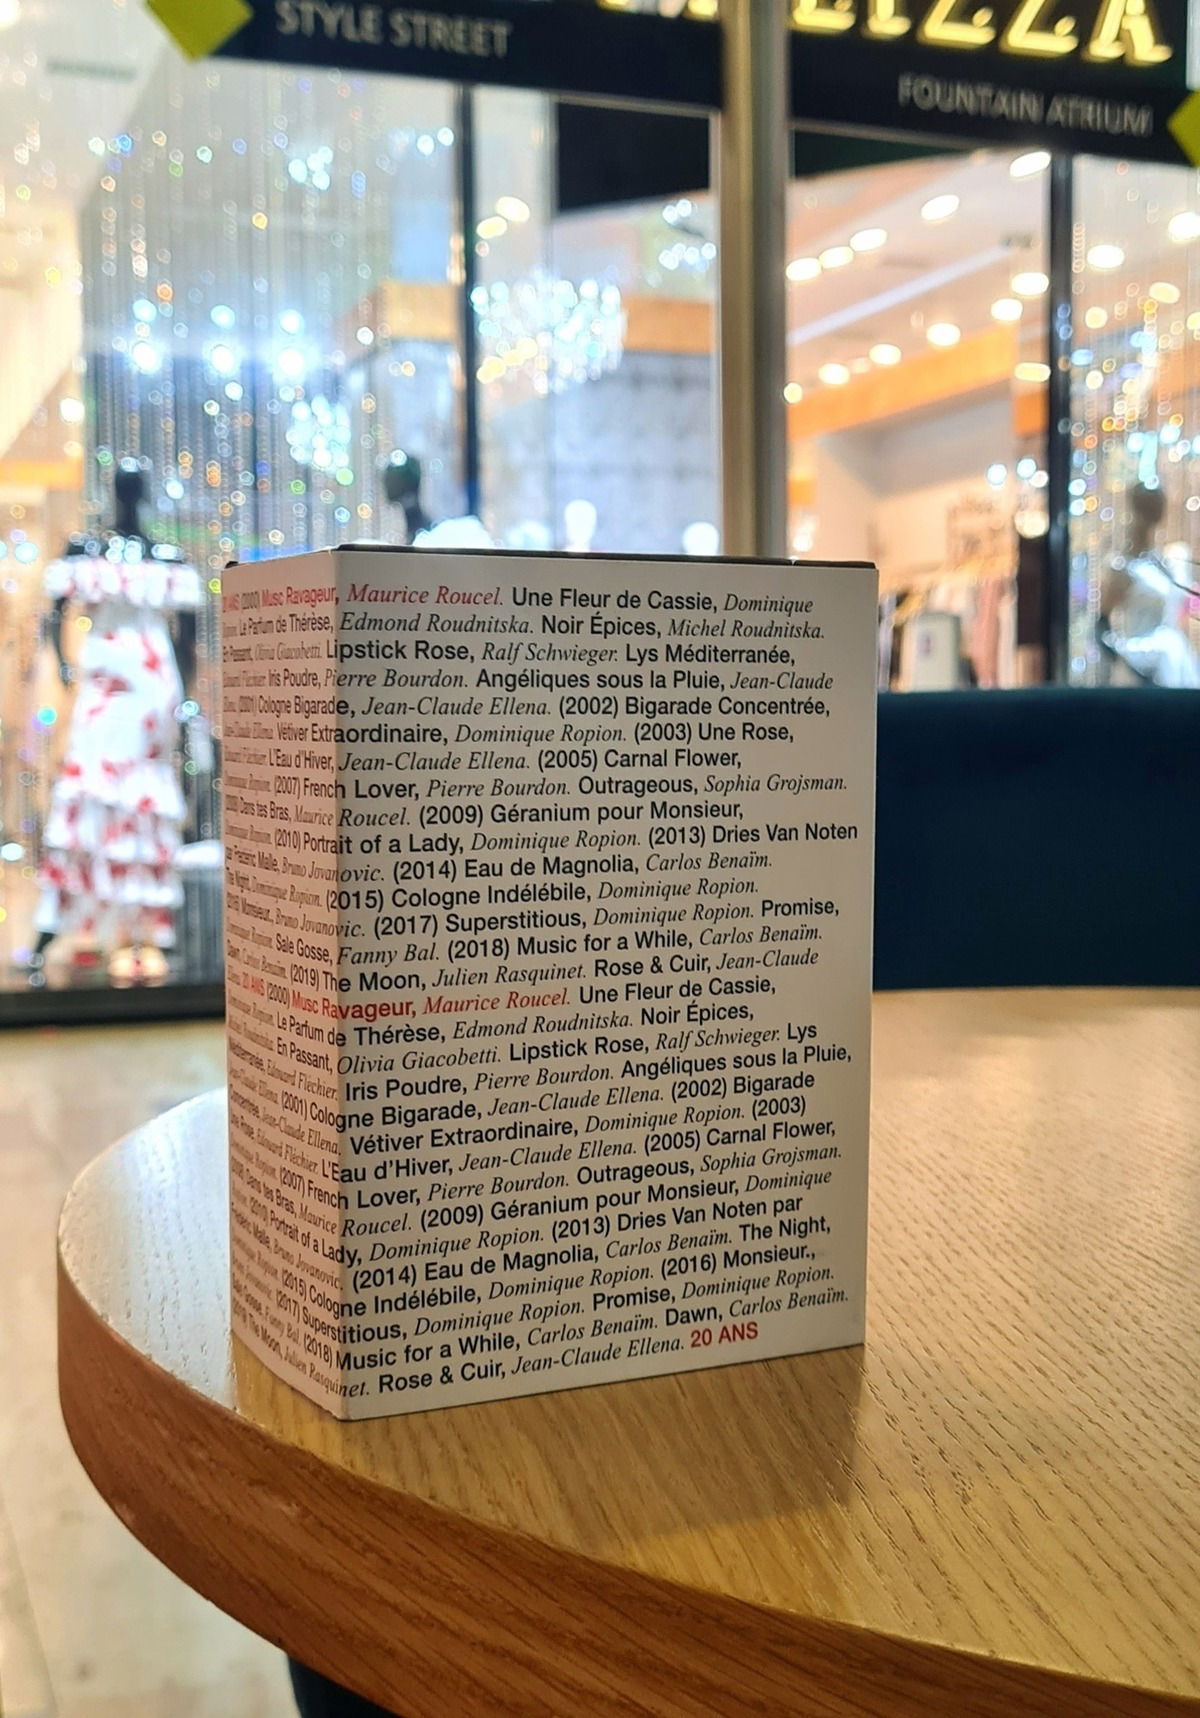 STYLE STREET
FOUNTAIN ATRIUM
20 ANS (2000) Musc Ravageur, Maurice Roucel. Une Fleur de Cassie, Dominique
Ropion. Le Parfum de Thérèse, Edmond Roudnitska. Noir Épices, Michel Roudnitska.
En Passant, Olivia Giacobetti. Lipstick Rose, Ralf Schwieger. Lys Méditerranée,
Edouard Fléchier. Iris Poudre, Pierre Bourdon. Angéliques sous la Pluie, Jean-Claude
Ellena. (2001) Cologne Bigarade, Jean-Claude Ellena. (2002) Bigarade Concentrée,
Jean-Claude Ellena. Vétiver Extraordinaire, Dominique Ropion. (2003) Une Rose,
Edouard Fléchier. L'Eau d'Hiver, Jean-Claude Ellena. (2005) Carnal Flower,
Dominique Ropion. (2007) French Lover, Pierre Bourdon. Outrageous, Sophia Grojsman.
(2008) Dans tes Bras, Maurice Roucel. (2009) Géranium pour Monsieur,
Dominique Ropion. (2010) Portrait of a Lady, Dominique Ropion. (2013) Dries Van Noten
par Frédéric Malle, Bruno Jovanovic. (2014) Eau de Magnolia, Carlos Benaïm.
The Night, Dominique Ropion. (2015) Cologne Indélébile, Dominique Ropion.
(2016) Monsieur., Bruno Jovanovic. (2017) Superstitious, Dominique Ropion. Promise,
Dominique Ropion. Sale Gosse, Fanny Bal. (2018) Music for a While, Carlos Benaïm.
Dawn, Carlos Benaïm. (2019) The Moon, Julien Rasquinet. Rose & Cuir, Jean-Claude
Ellena. 20 ANS (2000) Musc Ravageur, Maurice Roucel. Une Fleur de Cassie,
Dominique Ropion. Le Parfum de Thérèse, Edmond Roudnitska. Noir Épices,
Michel Roudnitska. En Passant, Olivia Giacobetti. Lipstick Rose, Ralf Schwieger. Lys
Méditerranée, Edouard Fléchier. Iris Poudre, Pierre Bourdon. Angéliques sous la Pluie,
Jean-Claude Ellena. (2001) Cologne Bigarade, Jean-Claude Ellena. (2002) Bigarade
Concentrée, Jean-Claude Ellena. Vétiver Extraordinaire, Dominique Ropion. (2003)
Une Rose, Edouard Fléchier. L'Eau d'Hiver, Jean-Claude Ellena. (2005) Carnal Flower,
Dominique Ropion. (2007) French Lover, Pierre Bourdon. Outrageous, Sophia Grojsman.
(2008) Dans tes Bras, Maurice Roucel. (2009) Géranium pour Monsieur, Dominique
Ropion. (2010) Portrait of a Lady, Dominique Ropion. (2013) Dries Van Noten par
Frédéric Malle, Bruno Jovanovic. (2014) Eau de Magnolia, Carlos Benaïm. The Night,
Dominique Ropion. (2015) Cologne Indélébile, Dominique Ropion. (2016) Monsieur.,
Bruno Jovanovic. (2017) Superstitious, Dominique Ropion. Promise, Dominique Ropion.
Sale Gosse, Fanny Bal. (2018) Music for a While, Carlos Benaïm. Dawn, Carlos Benaïm.
2019 The Moon, Julien Rasquinet. Rose & Cuir, Jean-Claude Ellena. 20 ANS